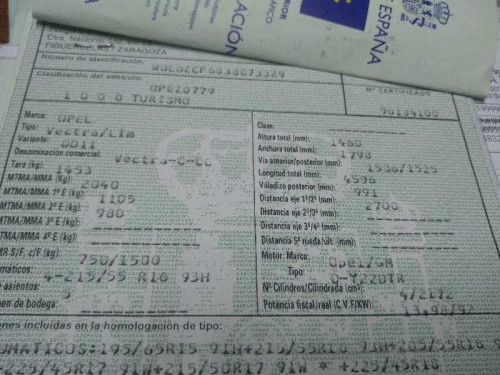 ESPAÑA
Ctra. Nacional
FIGUERUELAS ZARAGOZA
Número de identificación:
W0L0ZCF6838073329
Clasificación del vehículo:
OPEZ0779
Nº CERTIFICADO
1 0 0 0 TURISMO
96134100
Marca: OPEL
Clase:
Tipo: Vectra/Lim
Altura total (mm): 1460
Variante: DD11
Anchura total (mm): 1798
Denominación comercial: Vectra-C-CC
Vía anterior/posterior (mm): 1536/1525
Tara (kg): 1453
Longitud total (mm): 4596
MTMA/MMA (Kg): 2040
Voladizo posterior (mm): 991
MTMA/MMA 1º E (kg): 1105
Distancia eje 1º/2º (mm): 2700
MTMA/MMA 2º E (kg): 980
Distancia eje 2º/3º (mm):
MTMA/MMA 3º E (kg):
Distancia eje 3º/4º (mm):
MTMA/MMA 4º E (kg):
Distancia 5ª rueda/últ. (mm):
MR S/F, c/F (kg): 750/1500
Motor: Marca: OPEL/GM
máticos: 4-215/55 R16 93H
Tipo: D-Y22DTR
asientos: 5
Nº Cilindros/Cilindrada (cm³): 4/2172
en de bodega:
Potencia fiscal/real (C.V.F/KW): 13,98/92
nes incluidas en la homologación de tipo:
UMATICOS:195/65R15 91H+215/55R16 93H+205/55R16
+225/45R17 91W+215/50R17 91W * +225/45R18